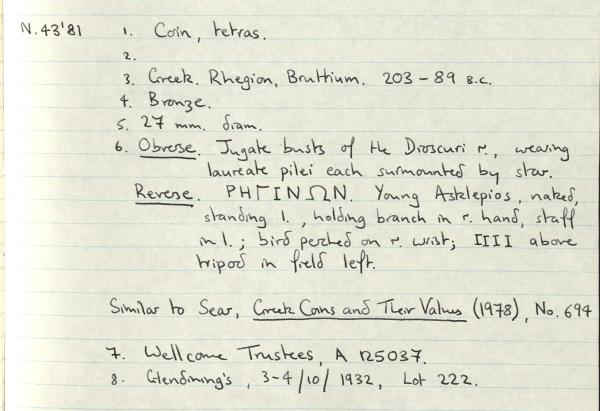 N.43'81 1. Coin, tetras.
2.
3. Greek. Rhegion, Bruttium. 203 - 89 B.C.
4. Bronze.
5. 27 mm. diam.
6. Obverse. Jugate busts of the Dioscuri r., wearing
laureate pilei each surmounted by star.
Reverse. ΡΗΓΙΝΩΝ. Young Asklepios, naked,
standing l., holding branch in r. hand, staff
in l.; bird perched on r. wrist; IIII above
tripod in field left.
Similar to Sear, Greek Coins and Their Values (1978), No. 694
7. Wellcome Trustees, A 125037.
8. Glendining's, 3-4/10/1932, Lot 222.